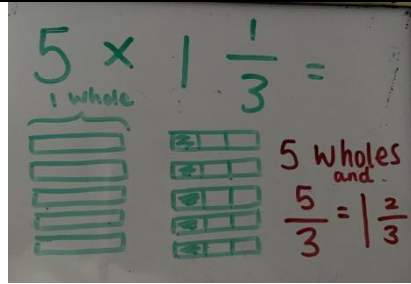 5 × 1 1/3 =
1 whole
5 wholes
and
5/3 = 1 2/3